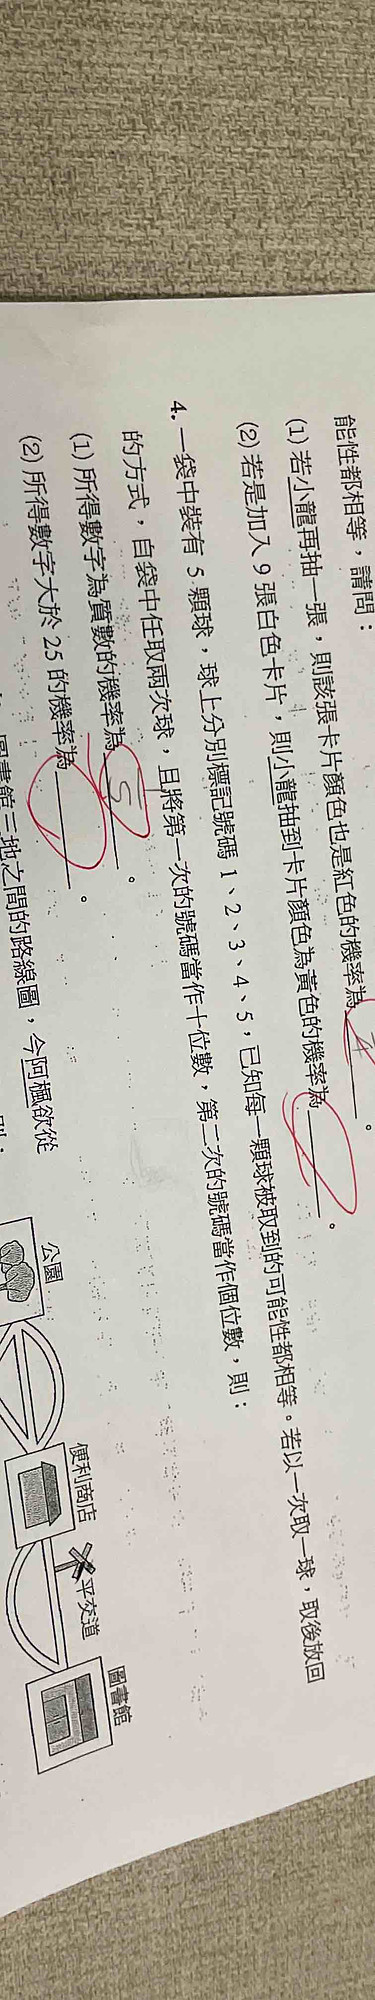 能性都相等，請問：
(1) 若小龍再抽一張，則該張卡片顏色也是紅色的機率為 。
(2) 若是加入 9 張白色卡片，則小龍抽到卡片顏色為黃色的機率為 。
4. 一袋中裝有 5 顆球，球上分別標記號碼 1、2、3、4、5，已知每一顆球被取到的可能性都相等。若以一次取一球，取後放回
的方式，自袋中任取兩次球，且將第一次的號碼當作十位數，第二次的號碼當作個位數，則：
(1) 所得數字為質數的機率為 。
(2) 所得數字大於 25 的機率為 。
圖書館三地之間的路線圖，今阿楓欲從
公園
便利商店
平交道
圖書館